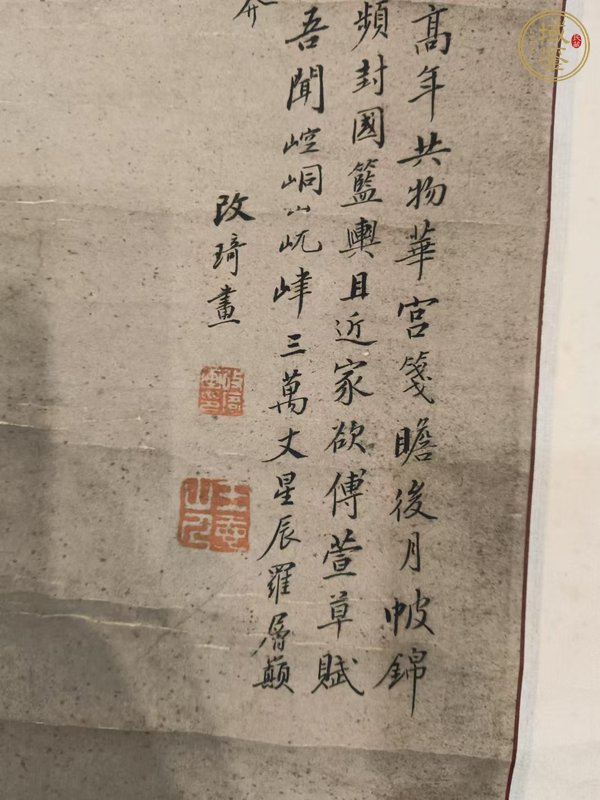 高年共物華宮箋瞻後月帔錦
頻封國籃輿且近家欲傅萱草賦
吾聞崆峒山屼峍三萬丈星辰羅層巔
介
改琦畫